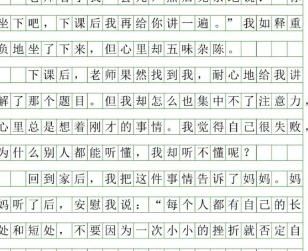 坐下吧，下课后我再给你讲一遍。”我如释重
负地坐了下来，但心里却五味杂陈。
下课后，老师果然找到我，耐心地给我讲
解了那个题目。但我却怎么也集中不了注意力，
心里总是想着刚才的事情。我觉得自己很失败，
为什么别人都能听懂，我却听不懂呢？
回到家后，我把这件事情告诉了妈妈。妈
妈听了后，安慰我说：“每个人都有自己的长
处和短处，不要因为一次小小的挫折就否定自